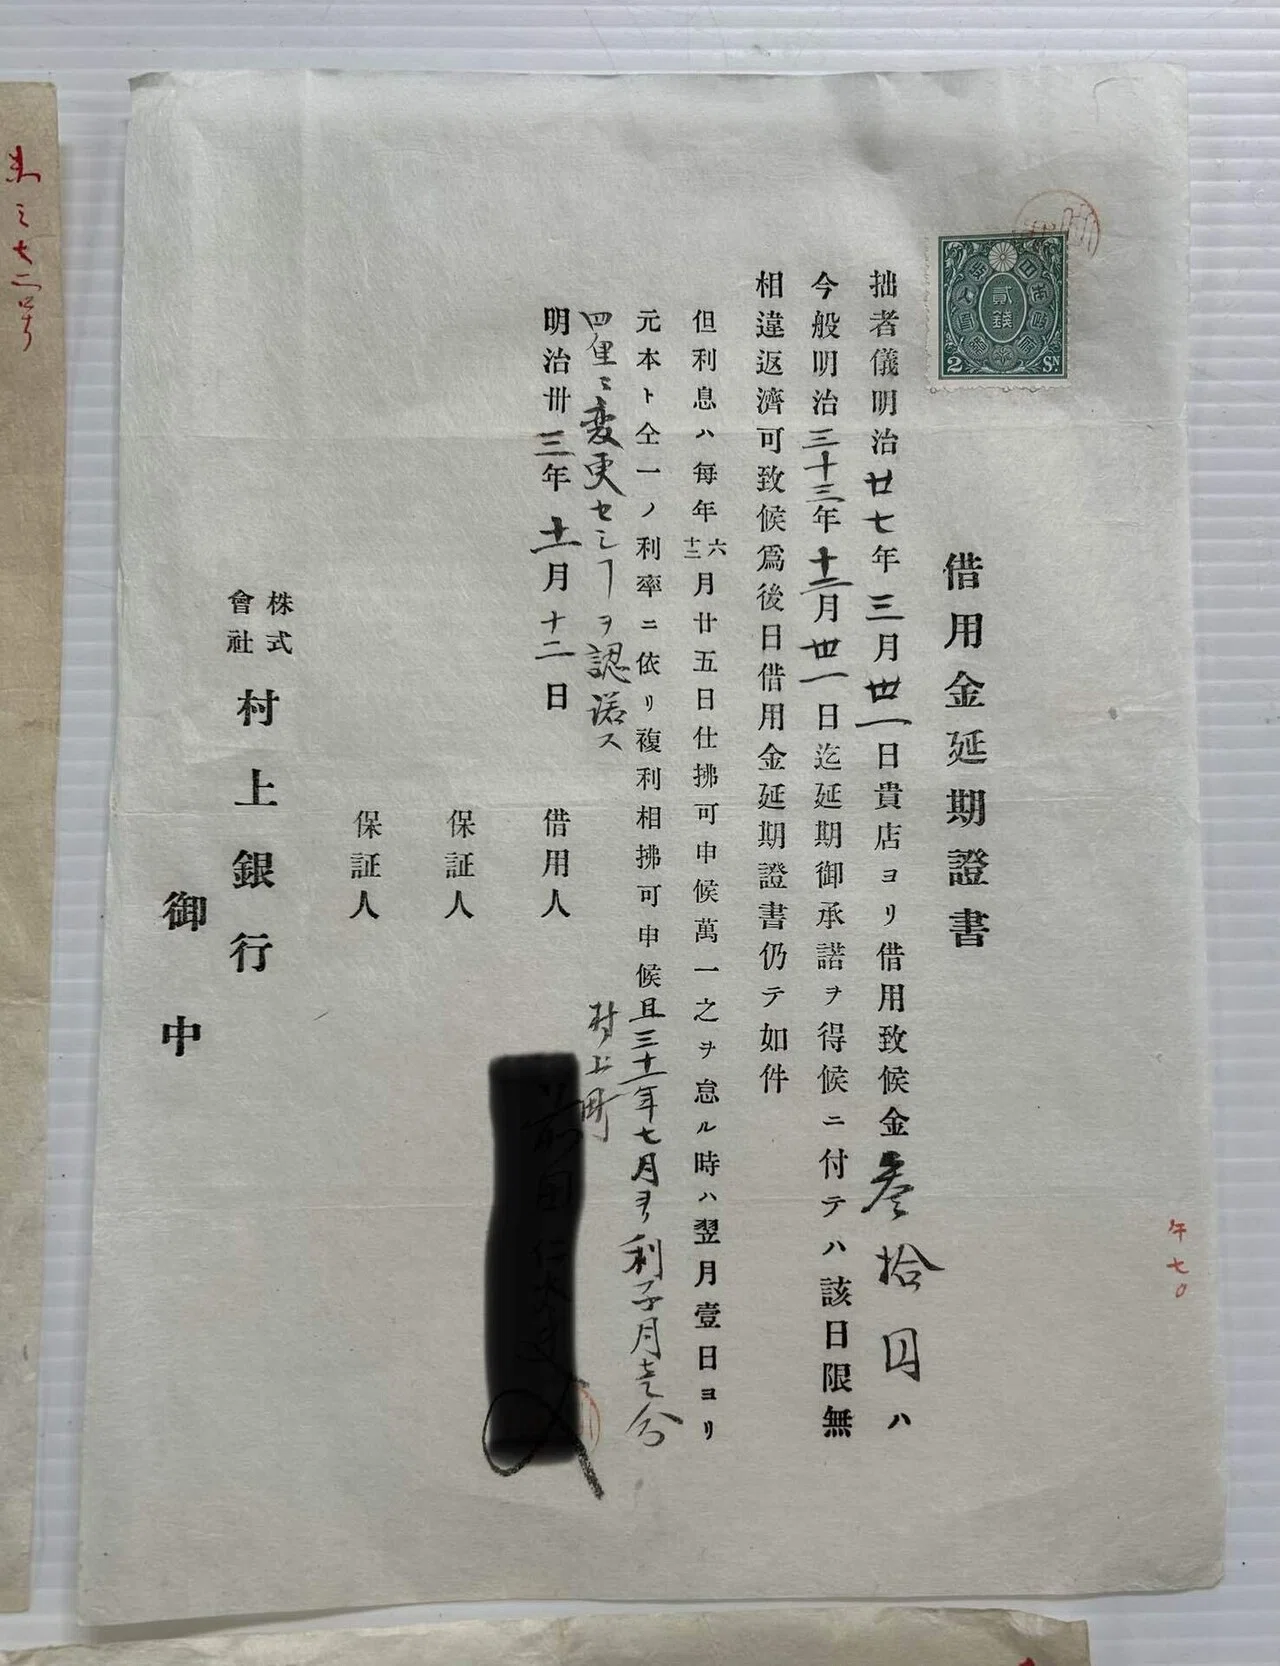 借用金延期證書
拙者儀明治廿七年三月卅一日貴店ヨリ借用致候金参拾円ハ
今般明治三十三年十二月卅一日迄延期御承諾ヲ得候ニ付テハ該日限無
相違返濟可致候爲後日借用金延期證書仍テ如件
但利息ハ每年六十二月廿五日仕拂可申候萬一之ヲ怠ル時ハ翌月壹日ヨリ
元本ト仝一ノ利率ニ依リ複利相拂可申候且三十一年七月ヨリ利子月壱分
四厘ニ変更セシヿヲ認諾ス
明治卅三年十一月十二日
村上町
借用人
保証人
保証人
株式會社村上銀行
御中
貳錢
2 Sn
午七〇
三七二号